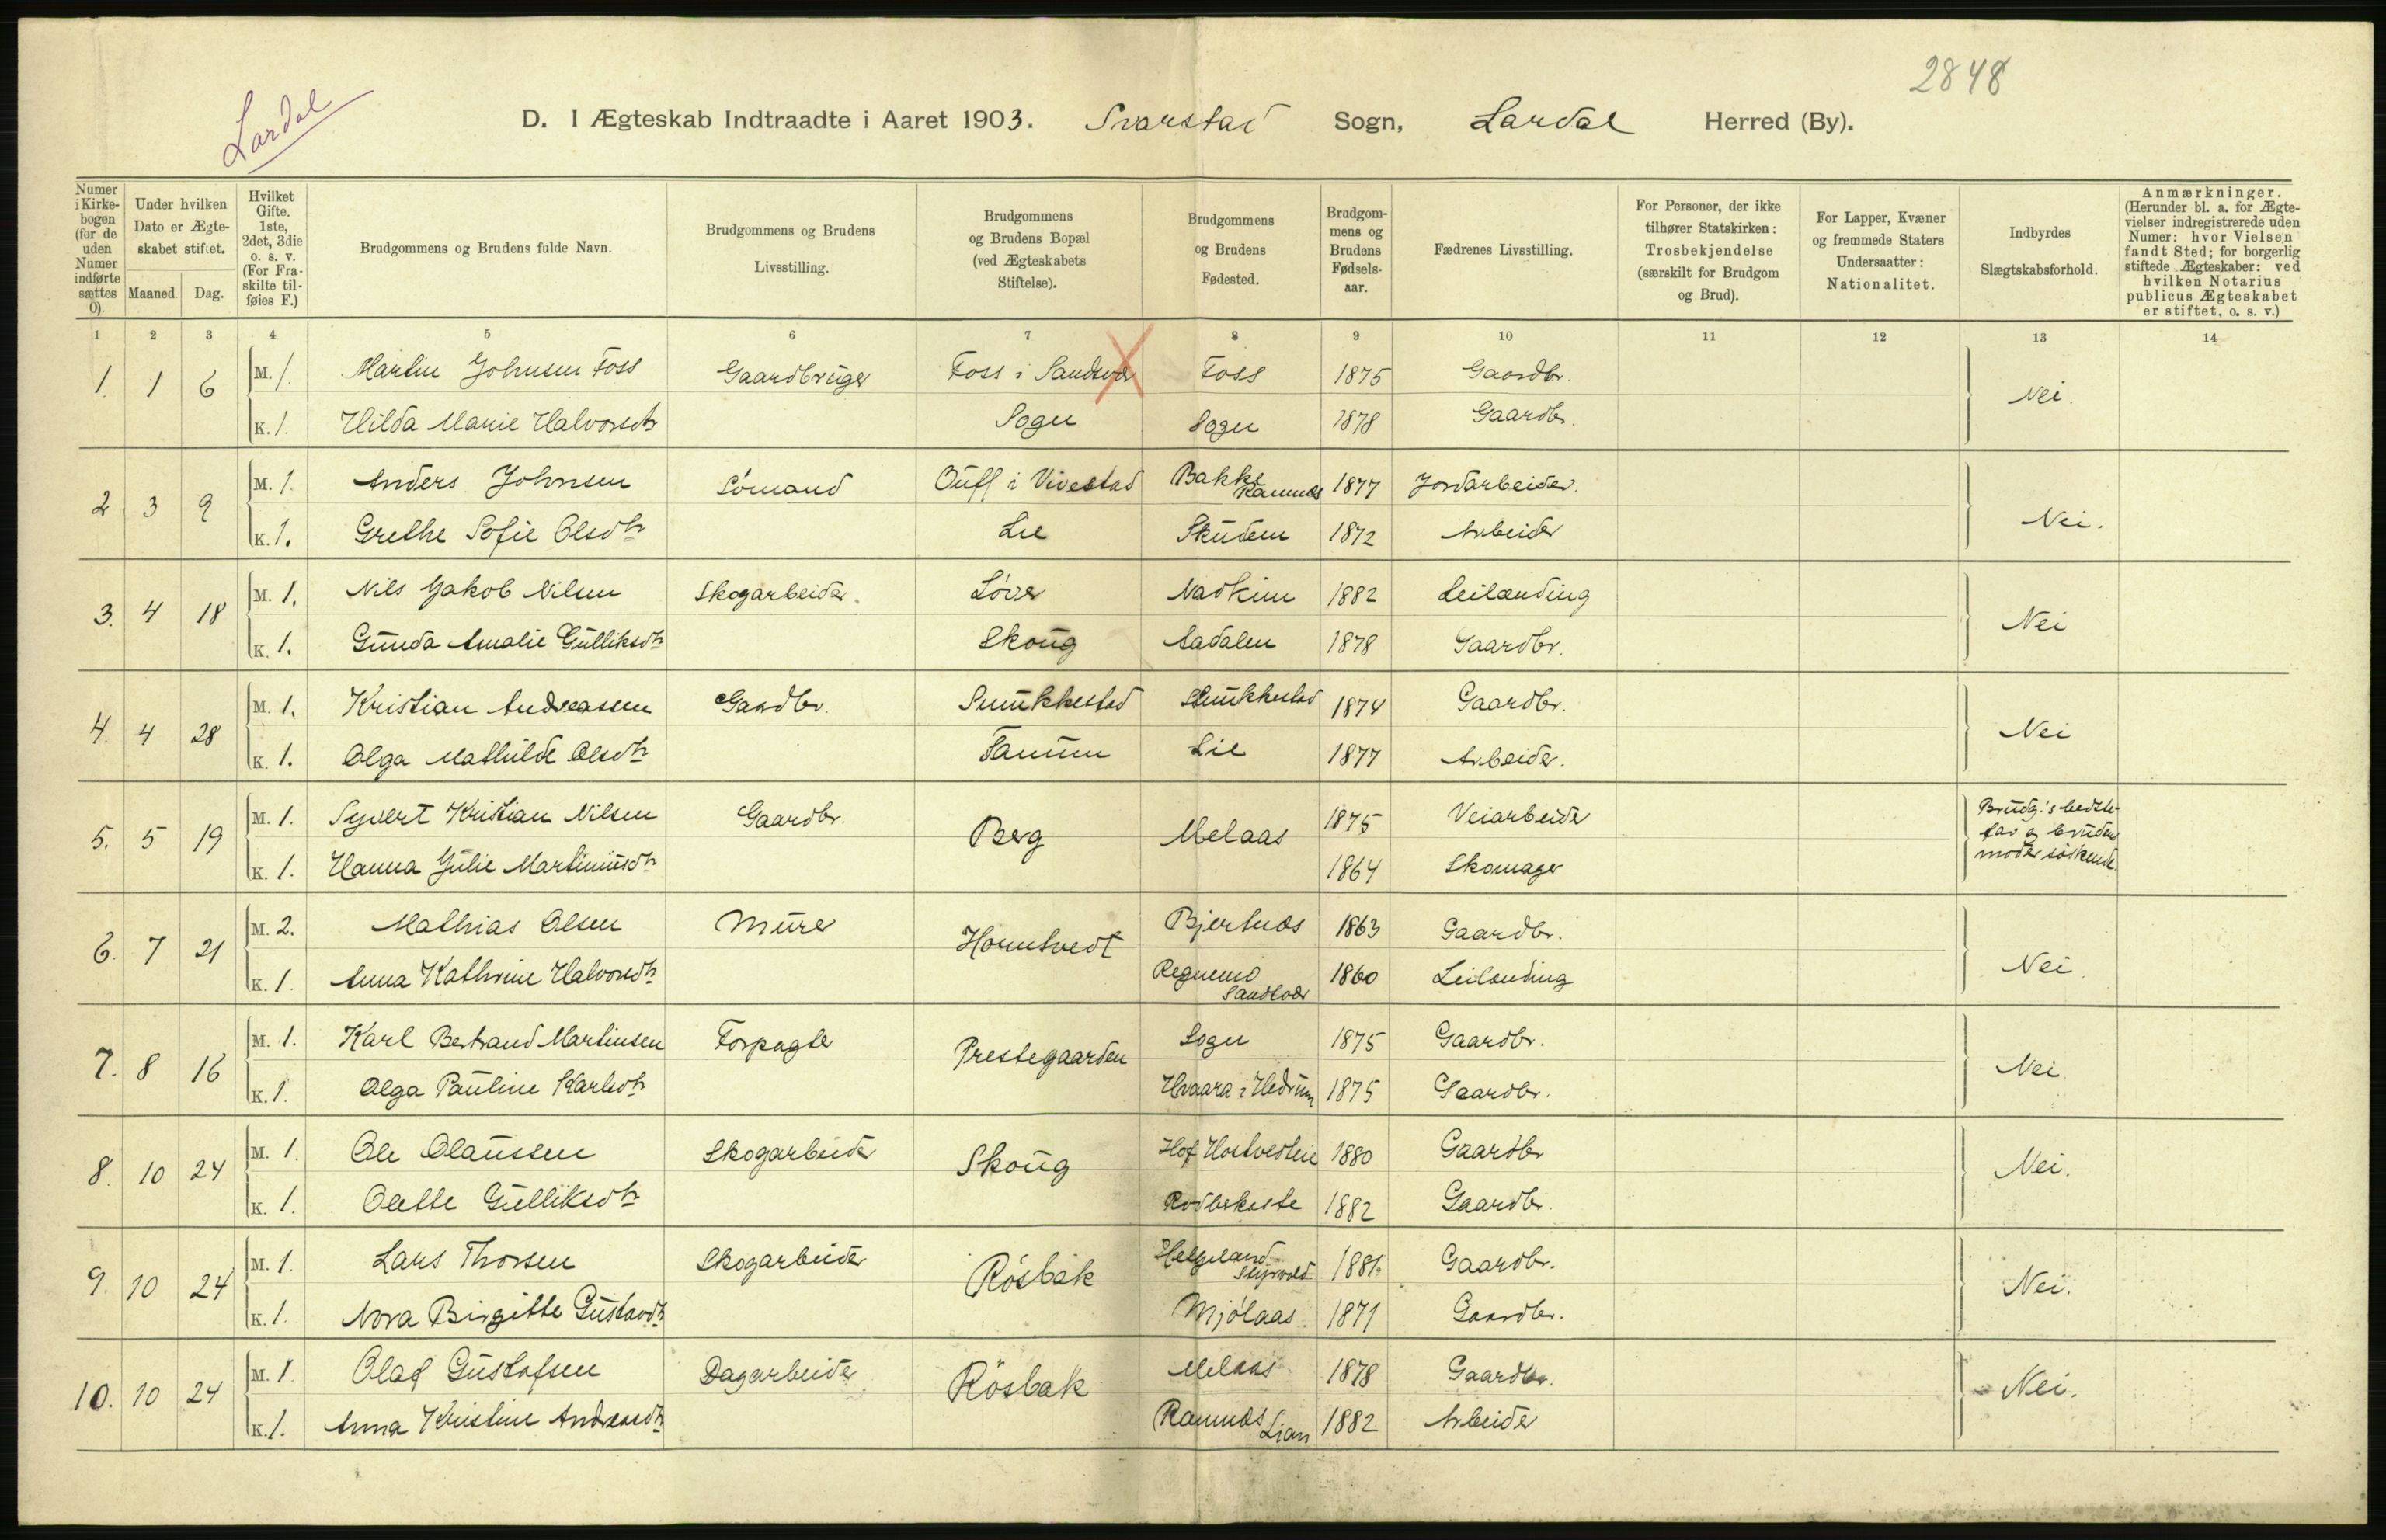 2848
Lardal
D. I Ægteskab Indtraadte i Aaret 1903. Svarstad Sogn, Lardal Herred (By).
Numer i Kirkebogen (for de uden Numer indførte sættes 0).
Under hvilken Dato er Ægteskabet stiftet.
Maaned. Dag.
Hvilket Gifte. 1ste, 2det, 3die o. s. v. (For Fraskilte tilføies F.)
Brudgommens og Brudens fulde Navn.
Brudgommens og Brudens Livsstilling.
Brudgommens og Brudens Bopæl (ved Ægteskabets Stiftelse).
Brudgommens og Brudens Fødested.
Brudgommens og Brudens Fødselsaar.
Fædrenes Livsstilling.
For Personer, der ikke tilhører Statskirken: Trosbekjendelse (særskilt for Brudgom og Brud).
For Lapper, Kvæner og fremmede Staters Undersaatter: Nationalitet.
Indbyrdes Slægtskabsforhold.
Anmærkninger. (Herunder bl. a. for Ægtevielser indregistrerede uden Numer: hvor Vielsen fandt Sted; for borgerlig stiftede Ægteskaber: ved hvilken Notarius publicus Ægteskabet er stiftet, o. s. v.)
1 2 3 4 5 6 7 8 9 10 11 12 13 14
1. 1 6 M. 1. Martin Johnsen Foss Gaardbruger Foss i Sandsvær Foss 1875 Gaardbr. Nei.
K. 1. Hilda Marie Halvorsdtr Sogn Sogn 1878 Gaardbr.
2 3 9 M. 1. Anders Johnsen Sømand Ouff i Vivestad Bakke Ramnæs 1877 Jordarbeider. Nei.
K. 1. Grethe Sofie Olsdtr Lie Skudem 1872 Arbeider
3. 4 18 M. 1. Nils Jakob Nilsen Skogarbeider. Løver 1882 Leilænding Nei
K. 1. Gunda Amalie Gulliksdtr Skoug Aadalen 1878 Gaardbr.
4. 4 28 M. 1. Kristian Andreassen Gaardbr. Smukkestad Smukkestad 1874 Gaardbr. Nei
K. 1. Olga Mathilde Olsdtr Famum Lie 1877 Arbeider.
5. 5 19 M. 1. Syvert Kristian Nilsen Gaardbr. Berg Melaas 1875 Veiarbeider Brudg.'s bedstefar og brudens moder søskende.
K. 1. Hanna Julie Martiniusdtr 1864 Skomager
6. 7 21 M. 2. Mathias Olsen Murer Horntvedt Bjertnæs 1863 Gaardbr. Nei.
K. 1. Anna Kathrine Halvorsdtr Regnemo Sandsvær 1860 Leilænding
7. 8 16 M. 1. Karl Bertrand Martinsen Forpagter Prestegaarden Sogn 1875 Gaardbr. Nei
K. 1. Olga Pauline Karlsdtr Hvaara i Hedrum 1875 Gaardbr.
8. 10 24 M. 1. Ole Olaussen Skogarbeider Skoug Hof 1880 Gaardbr Nei.
K. 1. Olette Gulliksdtr 1882 Gaardbr.
9. 10 24 M. 1. Lars Thorsen Skogarbeider Røsbak Helgeland Styrvold 1881. Gaardbr. Nei.
K. 1. Nora Birgitte Gustavdtr Mjølaas 1871 Gaardbr.
10. 10 24 M. 1 Olaf Gustafsen Dagarbeider Røsbak Melaas 1878 Gaardbr. Nei.
K. 1. Anna Kristine Andreasdtr Ramnæs Lian 1882 Arbeider